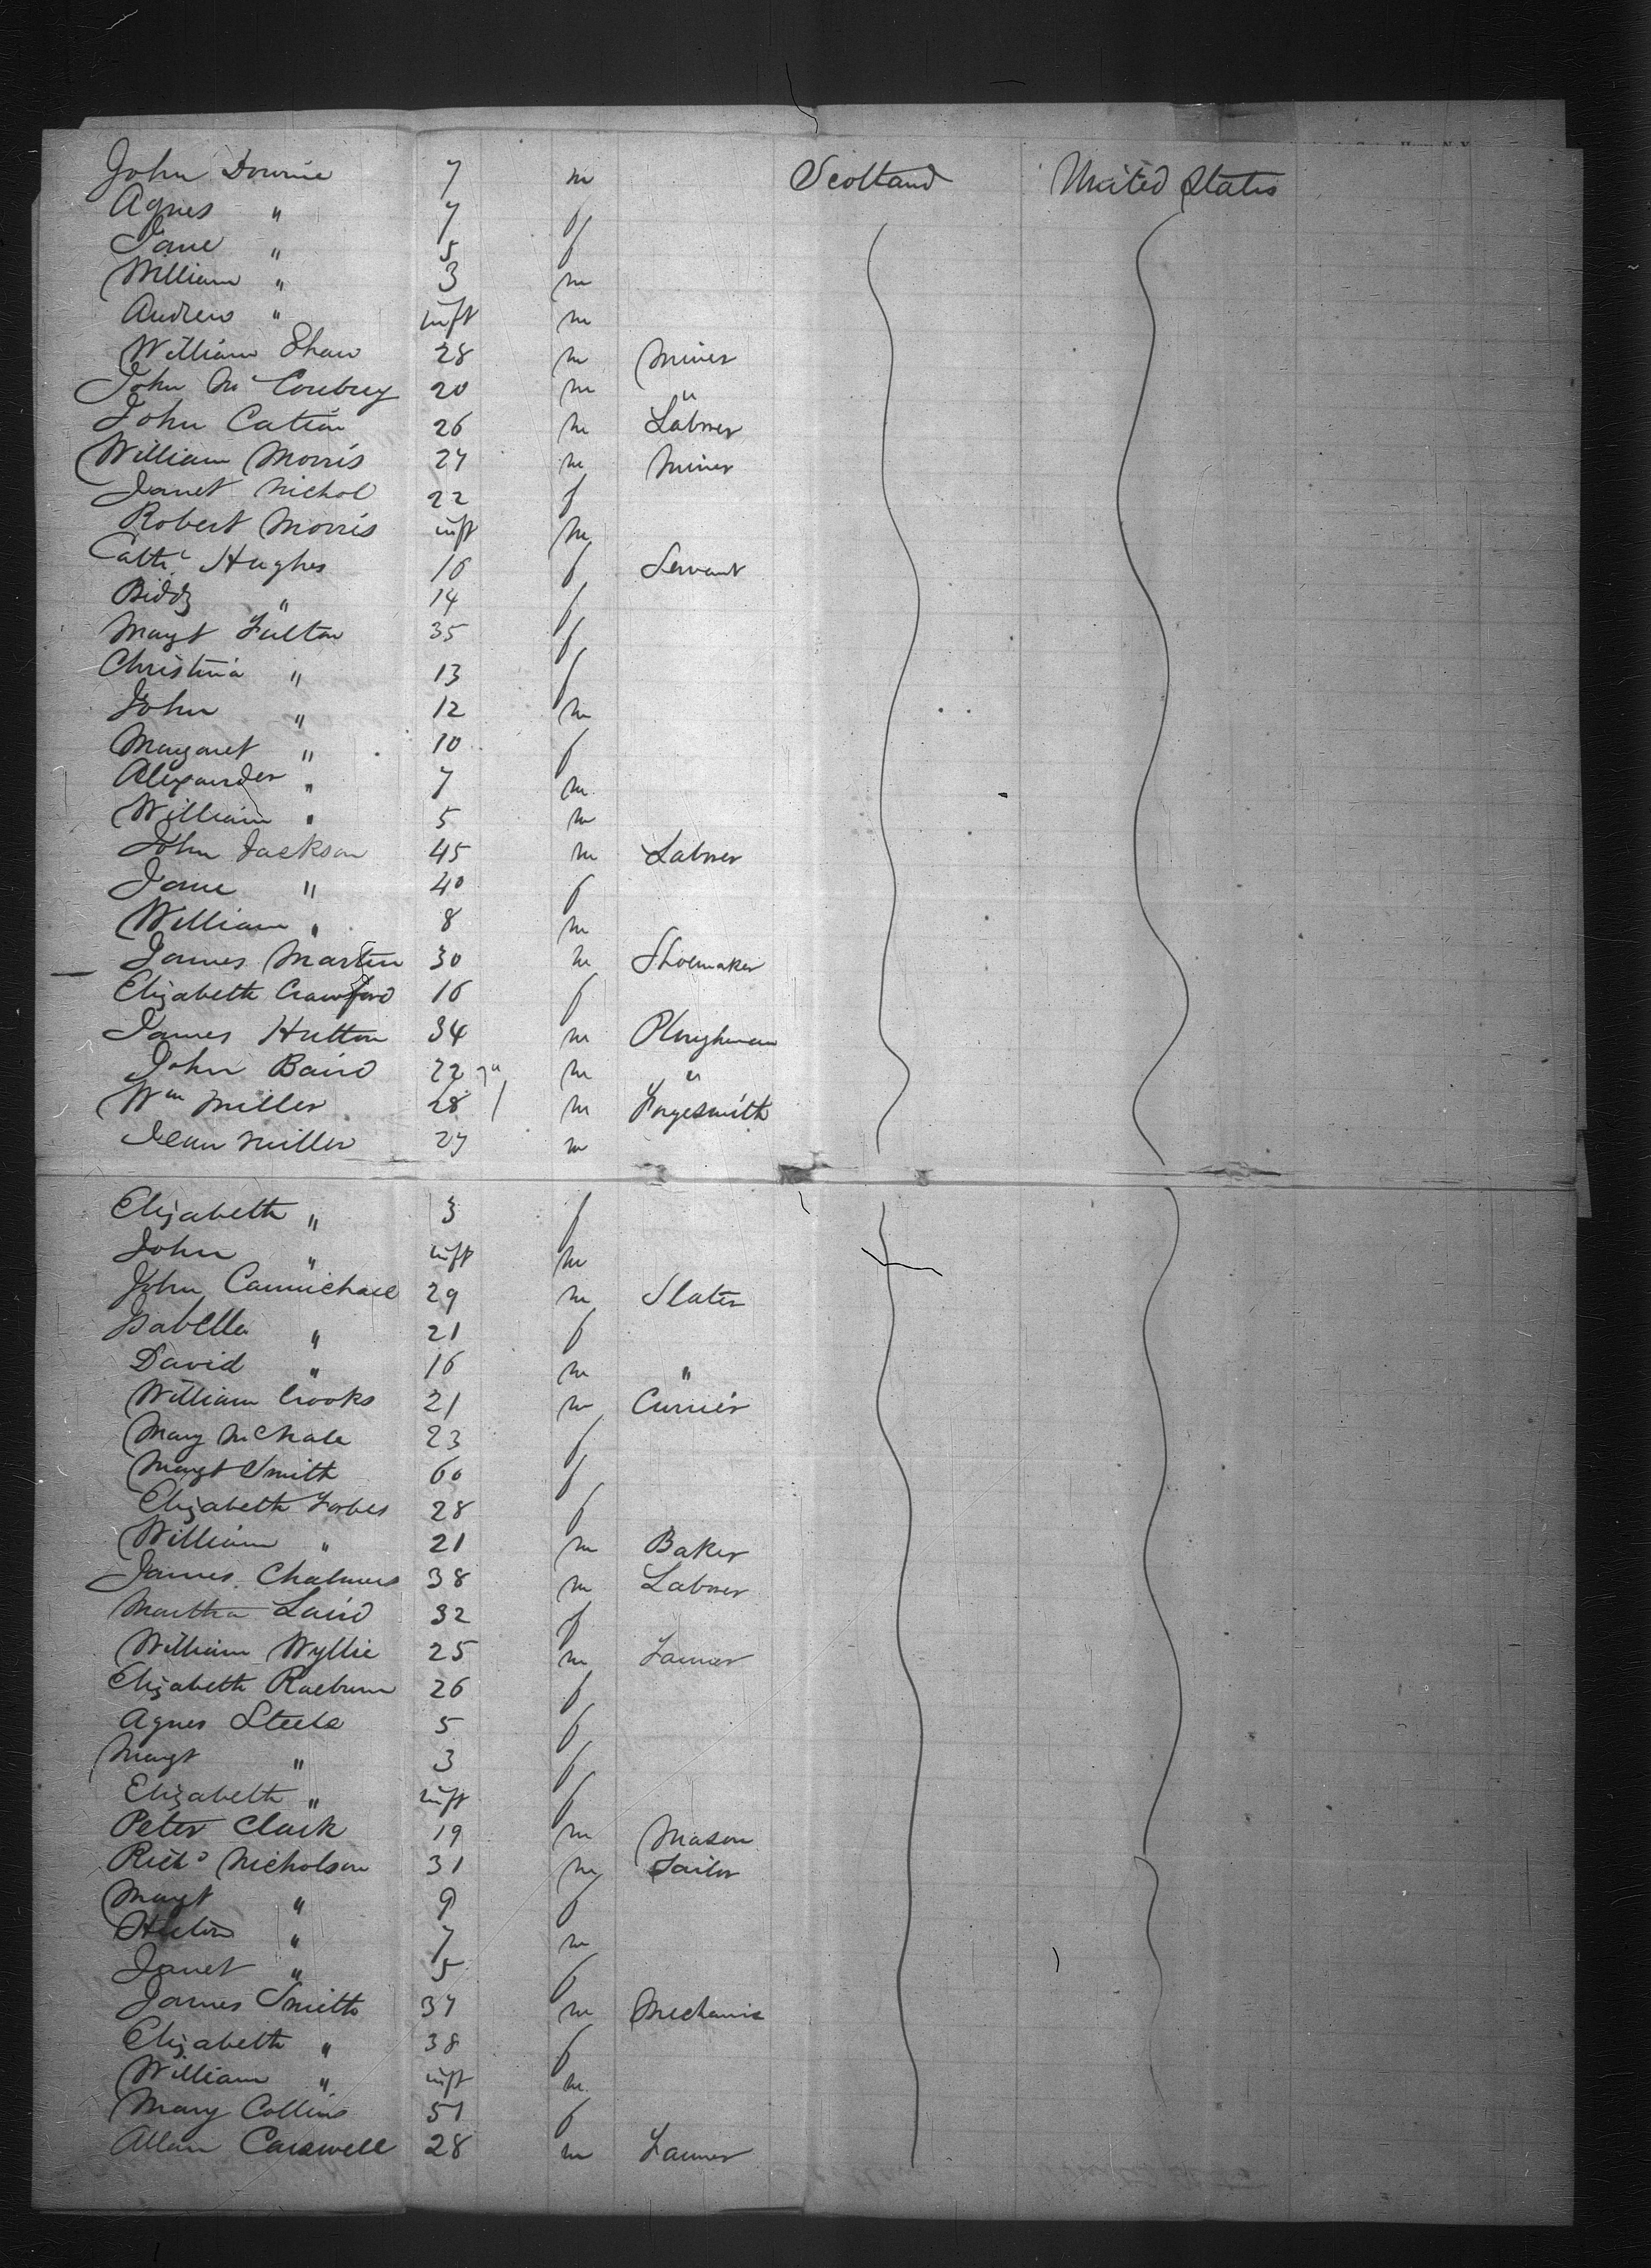 John Downie 7 m Scotland United States
Agnes " 7 f
Jane " 5 f
William " 3 m
Andrew " inft m
William Shaw 28 m Miner
John Mc Conbrey 20 m "
John Cation 26 m Labrer
William Morris 27 m Miner
Janet Nichol 22 f
Robert Morris inft m
Cathe Hughes 16 f Servant
Biddy " 14 f
Magt Fulton 35 f
Christina " 13 f
John " 12 m
Margaret " 10 f
Alexander " 7 m
William " 5 m
John Jackson 45 m Labrer
Jane " 40 f
William " 8 m
James Martin 30 m Shoemaker
Elizabeth Crawford 16 f
James Hutton 34 m Ploughman
John Baird 22 m "
Wm Miller 28 m Forgesmith
Jean Miller 27 m
Elizabeth " 3 f
John " inft m
John Carmichael 29 m Slater
Isabella " 21 f
David " 16 m "
William Crooks 21 m Currier
Mary 23 f
Magt Smith 60 f
Elizabeth Forbes 28 f
William " 21 m Baker
James Chalmers 38 m Labrer
Martha Laird 32 f
William Wyllie 25 m Farmer
Elizabeth Raeburn 26 f
Agnes Steele 5 f
Magt " 3 f
Elizabeth " inft f
Peter Clark 19 m Mason
Richd Nicholson 31 m Sailor
Magt " 9 f
" 7 m
Janet " 5 f
James Smith 37 m Mechanic
Elizabeth " 38 f
William " inft m
Mary Collins 51 f
Allan Carswell 28 m Farmer